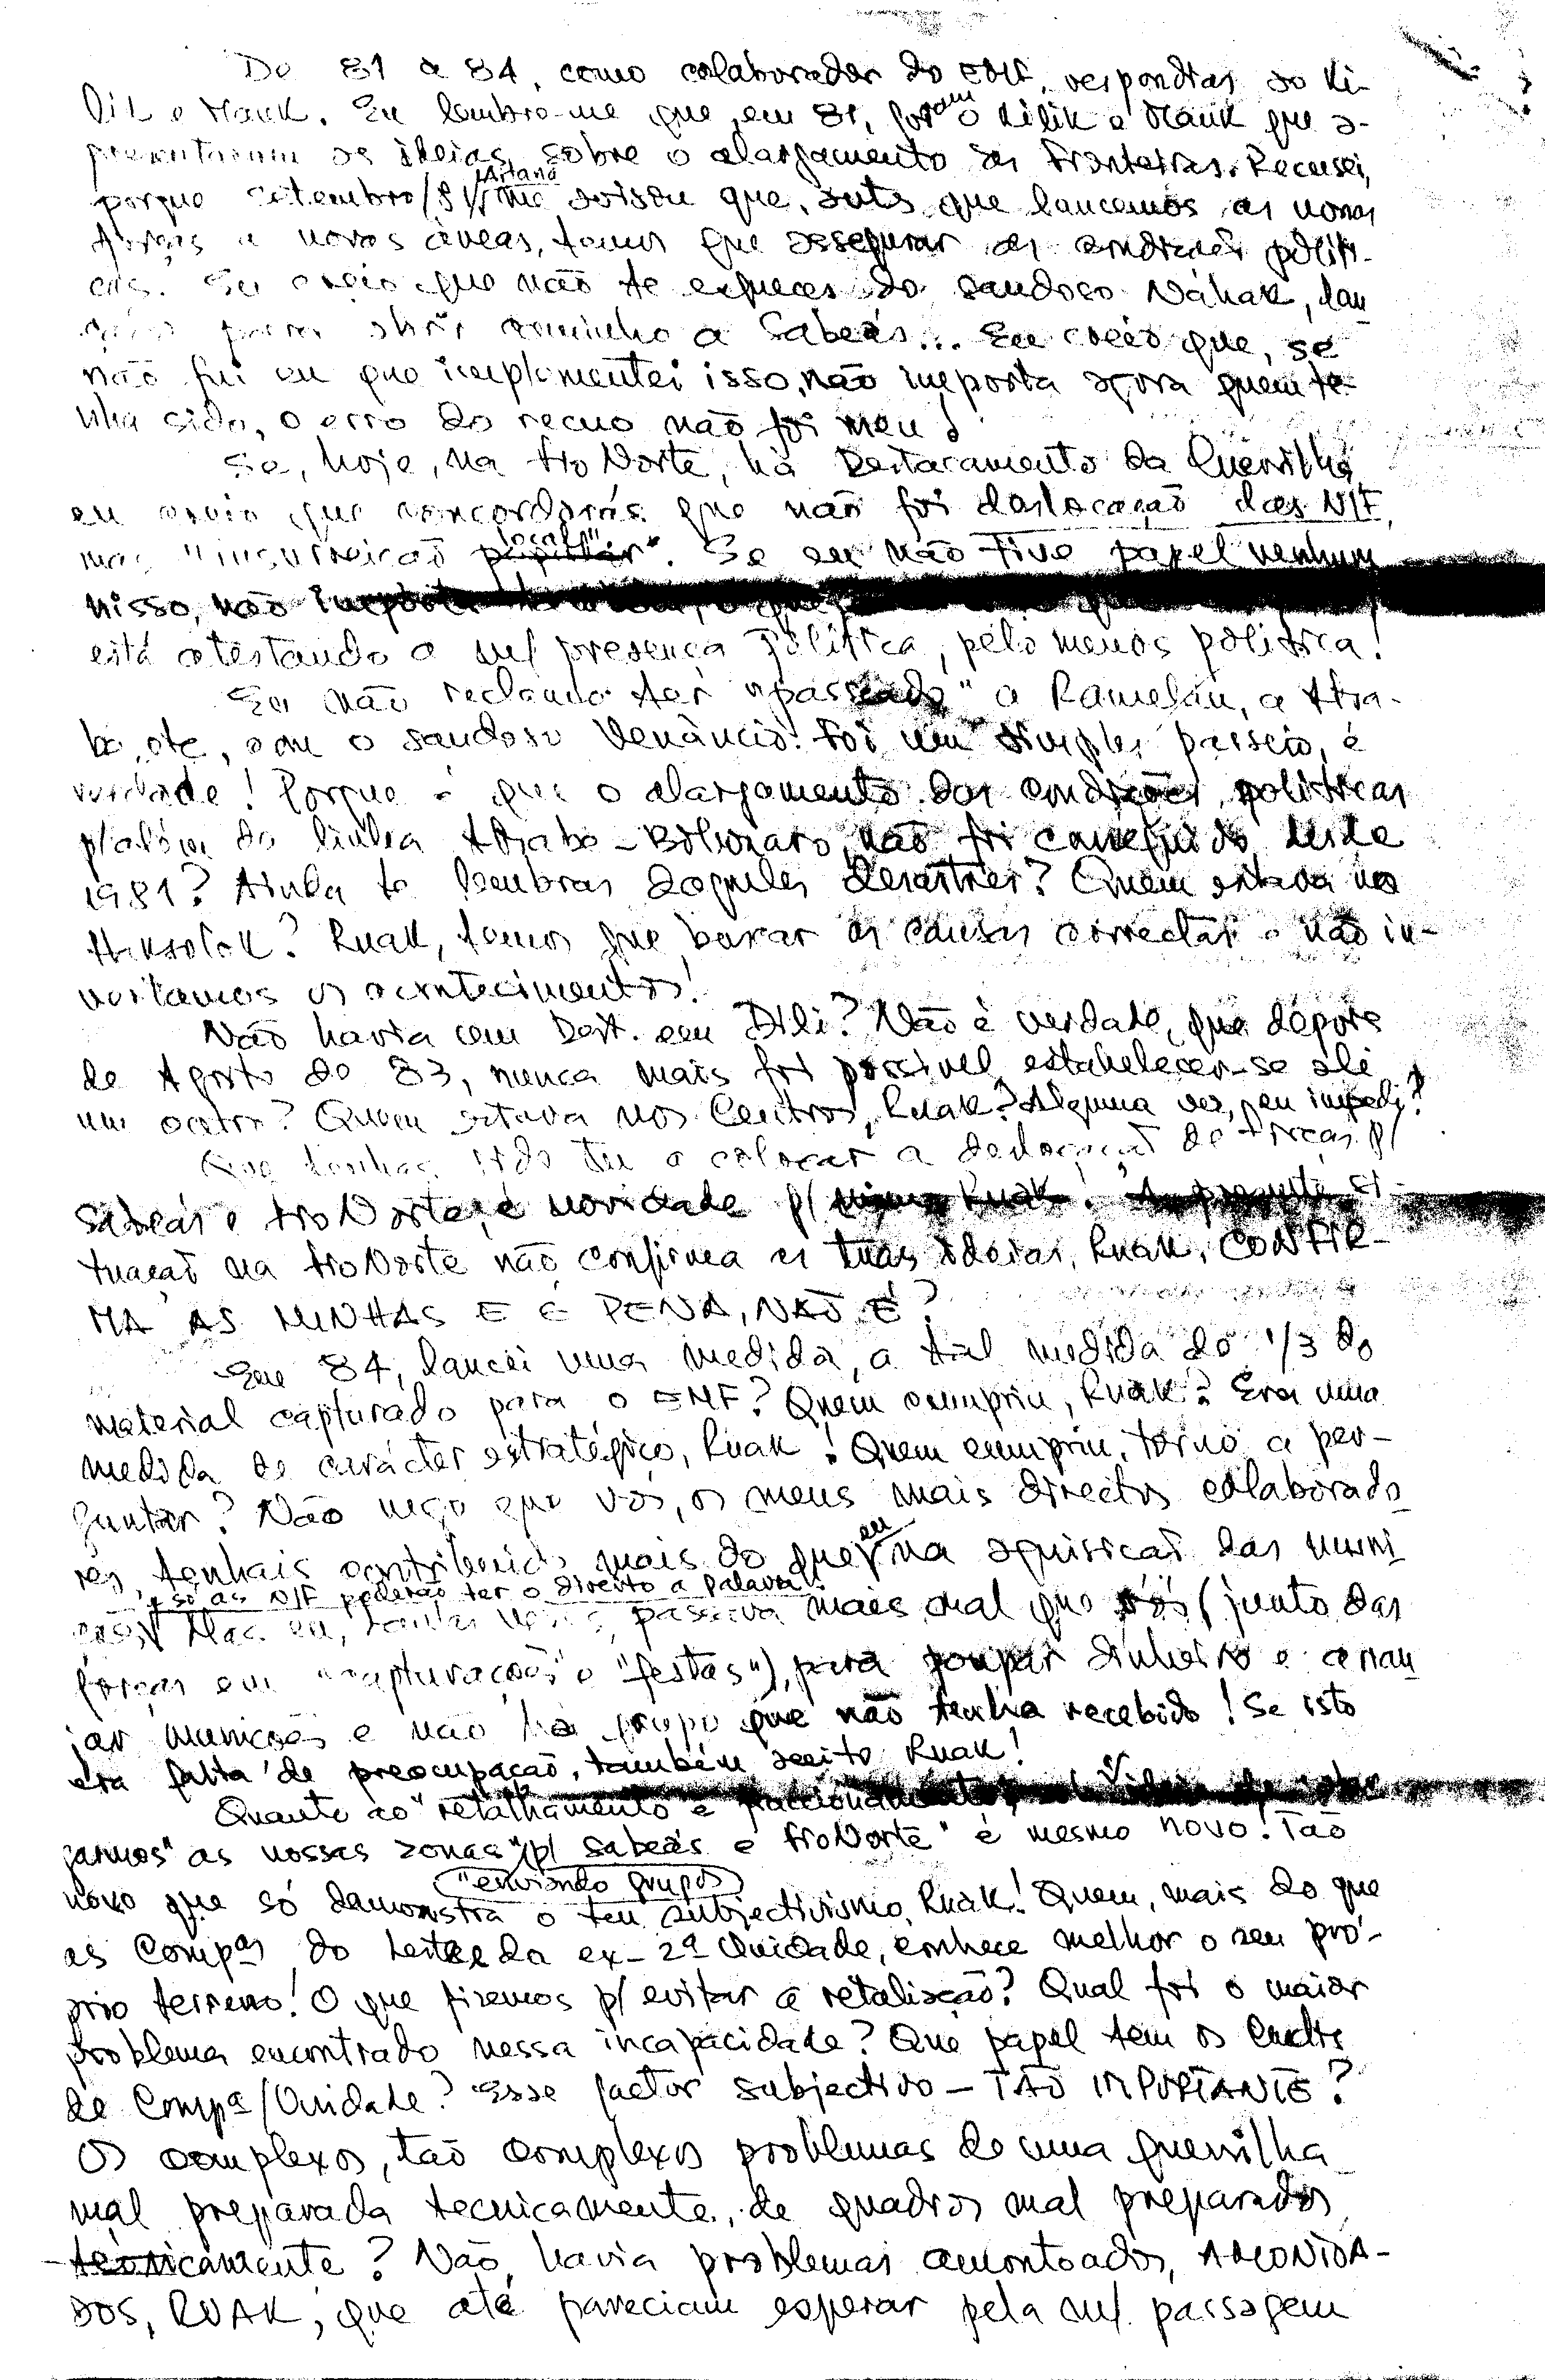 De 81 a 84, como colaborador do CEMF, respondias ao Ki-
lik e Mauk. Eu lembro-me que, em 81, foram o Kilik e Mauk que a-
presentaram as ideias sobre o alargamento das Fronteiras. Recusei,
porque setembro/81 me avisou que, antes que lancemos as nossas
forças a novas áreas, temos que assegurar as condições políti-
cas. Eu creio que não te esqueces do saudoso Náhak, lan
para abrir caminho a Sabeás... Eu creio que, se
não fui eu que implementei isso, não importa agora quem te-
nha sido, o erro do recuo não foi meu!
Se, hoje, na FroNorte, há Destacamento da Guerrilha
eu creio que concordarás que não foi deslocação das N/F,
mas "insurreição local". Se eu não tive papel nenhum
nisso, não
está atestando a m/ presença política, pelo menos política!
Eu não reclamo ter "passeado" a Ramelau, a Atsa-
be, etc, com o saudoso Venâncio! Foi um simples passeio, é
verdade! Porque é que o alargamento das condições políticas
p/além da linha Atsabe-Bobonaro não foi conseguido desde
1981? Ainda te lembras daqueles desastres? Quem estava no
? Ruak, temos que buscar as causas correctas e não in-
vertamos os acontecimentos!
Não havia um Dest. em Dili? Não é verdade, que depois
de Agosto de 83, nunca mais foi possível estabelecer-se ali
um outro? Quem estava nos Centros, Ruak? Alguma vez, eu impedi?
Que tenhas sido tu a colocar a deslocação de forças p/
Sabeás e FroNorte, é novidade p/ Ruak! A presente si-
tuação na FroNorte não confirma as tuas ideias, Ruak, CONFIR-
MA AS MINHAS E É PENA, NÃO É?
Em 84, lancei uma medida, a tal medida do 1/3 do
material capturado para o EMF? Quem cumpriu, Ruak? Era uma
medida de carácter estratégico, Ruak! Quem cumpriu, torno a per-
guntar? Não nego que vós, os meus mais directos colaborado
res, tenhais contribuido mais do que eu na aquisição das muni
e só as N/F poderão ter o direito a palavra!
ções. Mas eu, tantas vezes, passava mais mal que vós (junto das
forças em "capturações" e "festas"), para poupar dinheiro e arran
jar munições e não há grupo que não tenha recebido! Se isto
era falta de preocupação, também aceito Ruak!
Quanto ao "retalhamento e fraccionamento,
garmos" as nossas zonas "p/ Sabeás e FroNorte" é mesmo novo! Tão
"enviando grupos
novo que só demonstra o teu subjectivismo, Ruak! Quem, mais do que
as Compas do Leste da ex-2ª Unidade, conhece melhor o seu pró-
prio terreno! O que fizemos p/ evitar a retaliação? Qual foi o maior
problema encontrado nessa incapacidade? Que papel tem os Cmdts
de Compª/Unidade? Esse factor subjectivo - TÃO IMPORTANTE?
Os complexos, tão complexos problemas de uma guerrilha
mal preparada tecnicamente, de quadros mal preparados
teoricamente? Não havia problemas amontoados, AMONTOA-
DOS, RUAK, que até pareciam esperar pela m/ passagem